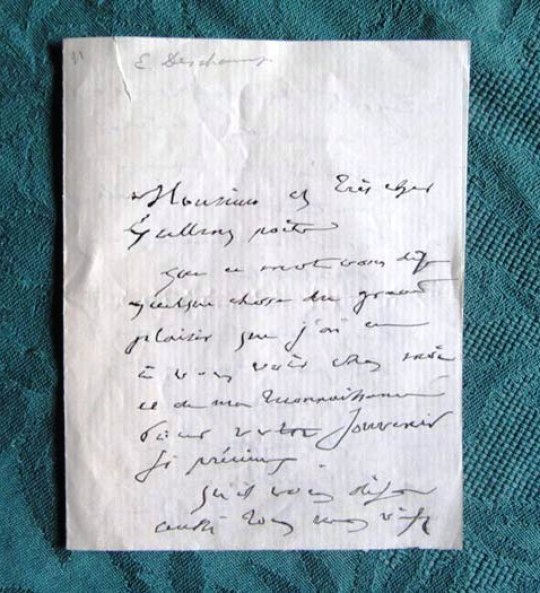 E. Deschamps
Monsieur et très cher
Que ce mot vous dise
quelque chose du grand
plaisir que j'ai eu
à vous voir chez
et de ma reconnaissance
pour votre souvenir
si précieux.
Qu'il vous dise
aussi tous mes vifs